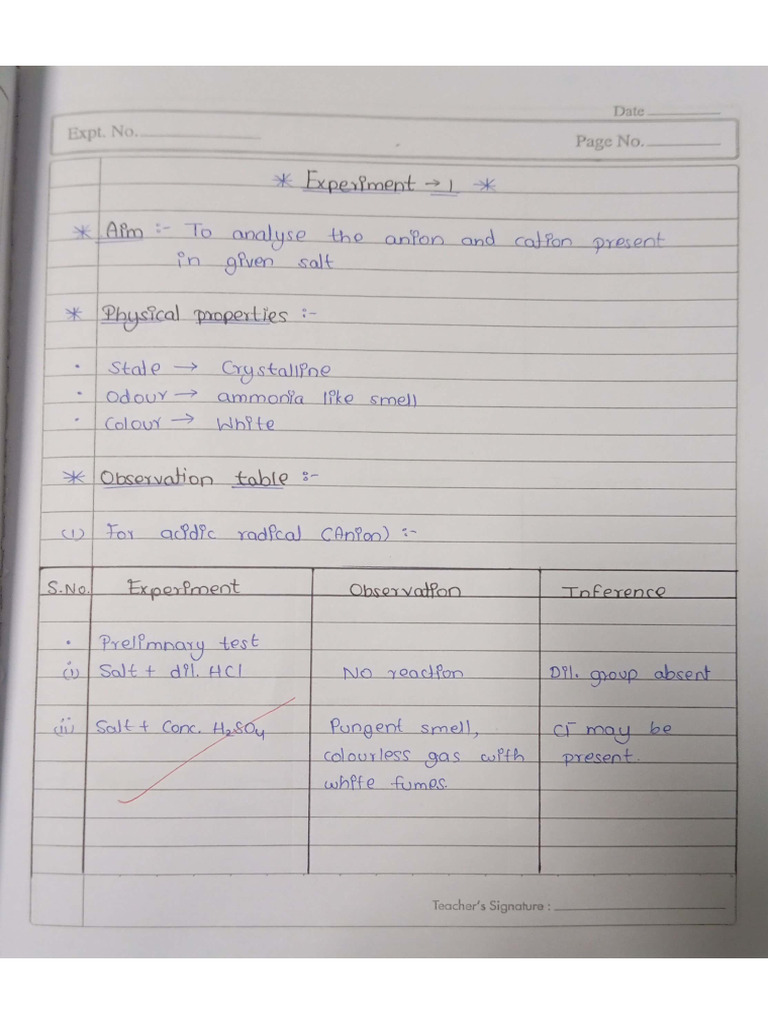 Date
Expt. No.
Page No.
* Experiment → 1 *
* Aim :- To analyse the anion and cation present
in given salt
* Physical properties :-
• State → Crystalline
• Odour → ammonia like smell
• Colour → White
* Observation table :-
(1) For acidic radical (Anion) :-
S.No. Experiment Observation Inference
• Prelimnary test
(i) Salt + dil. HCl No reaction Dil. group absent
(ii) Salt + Conc. H₂SO₄ Pungent smell, Cl⁻ may be
colourless gas with present.
white fumes.
Teacher's Signature :